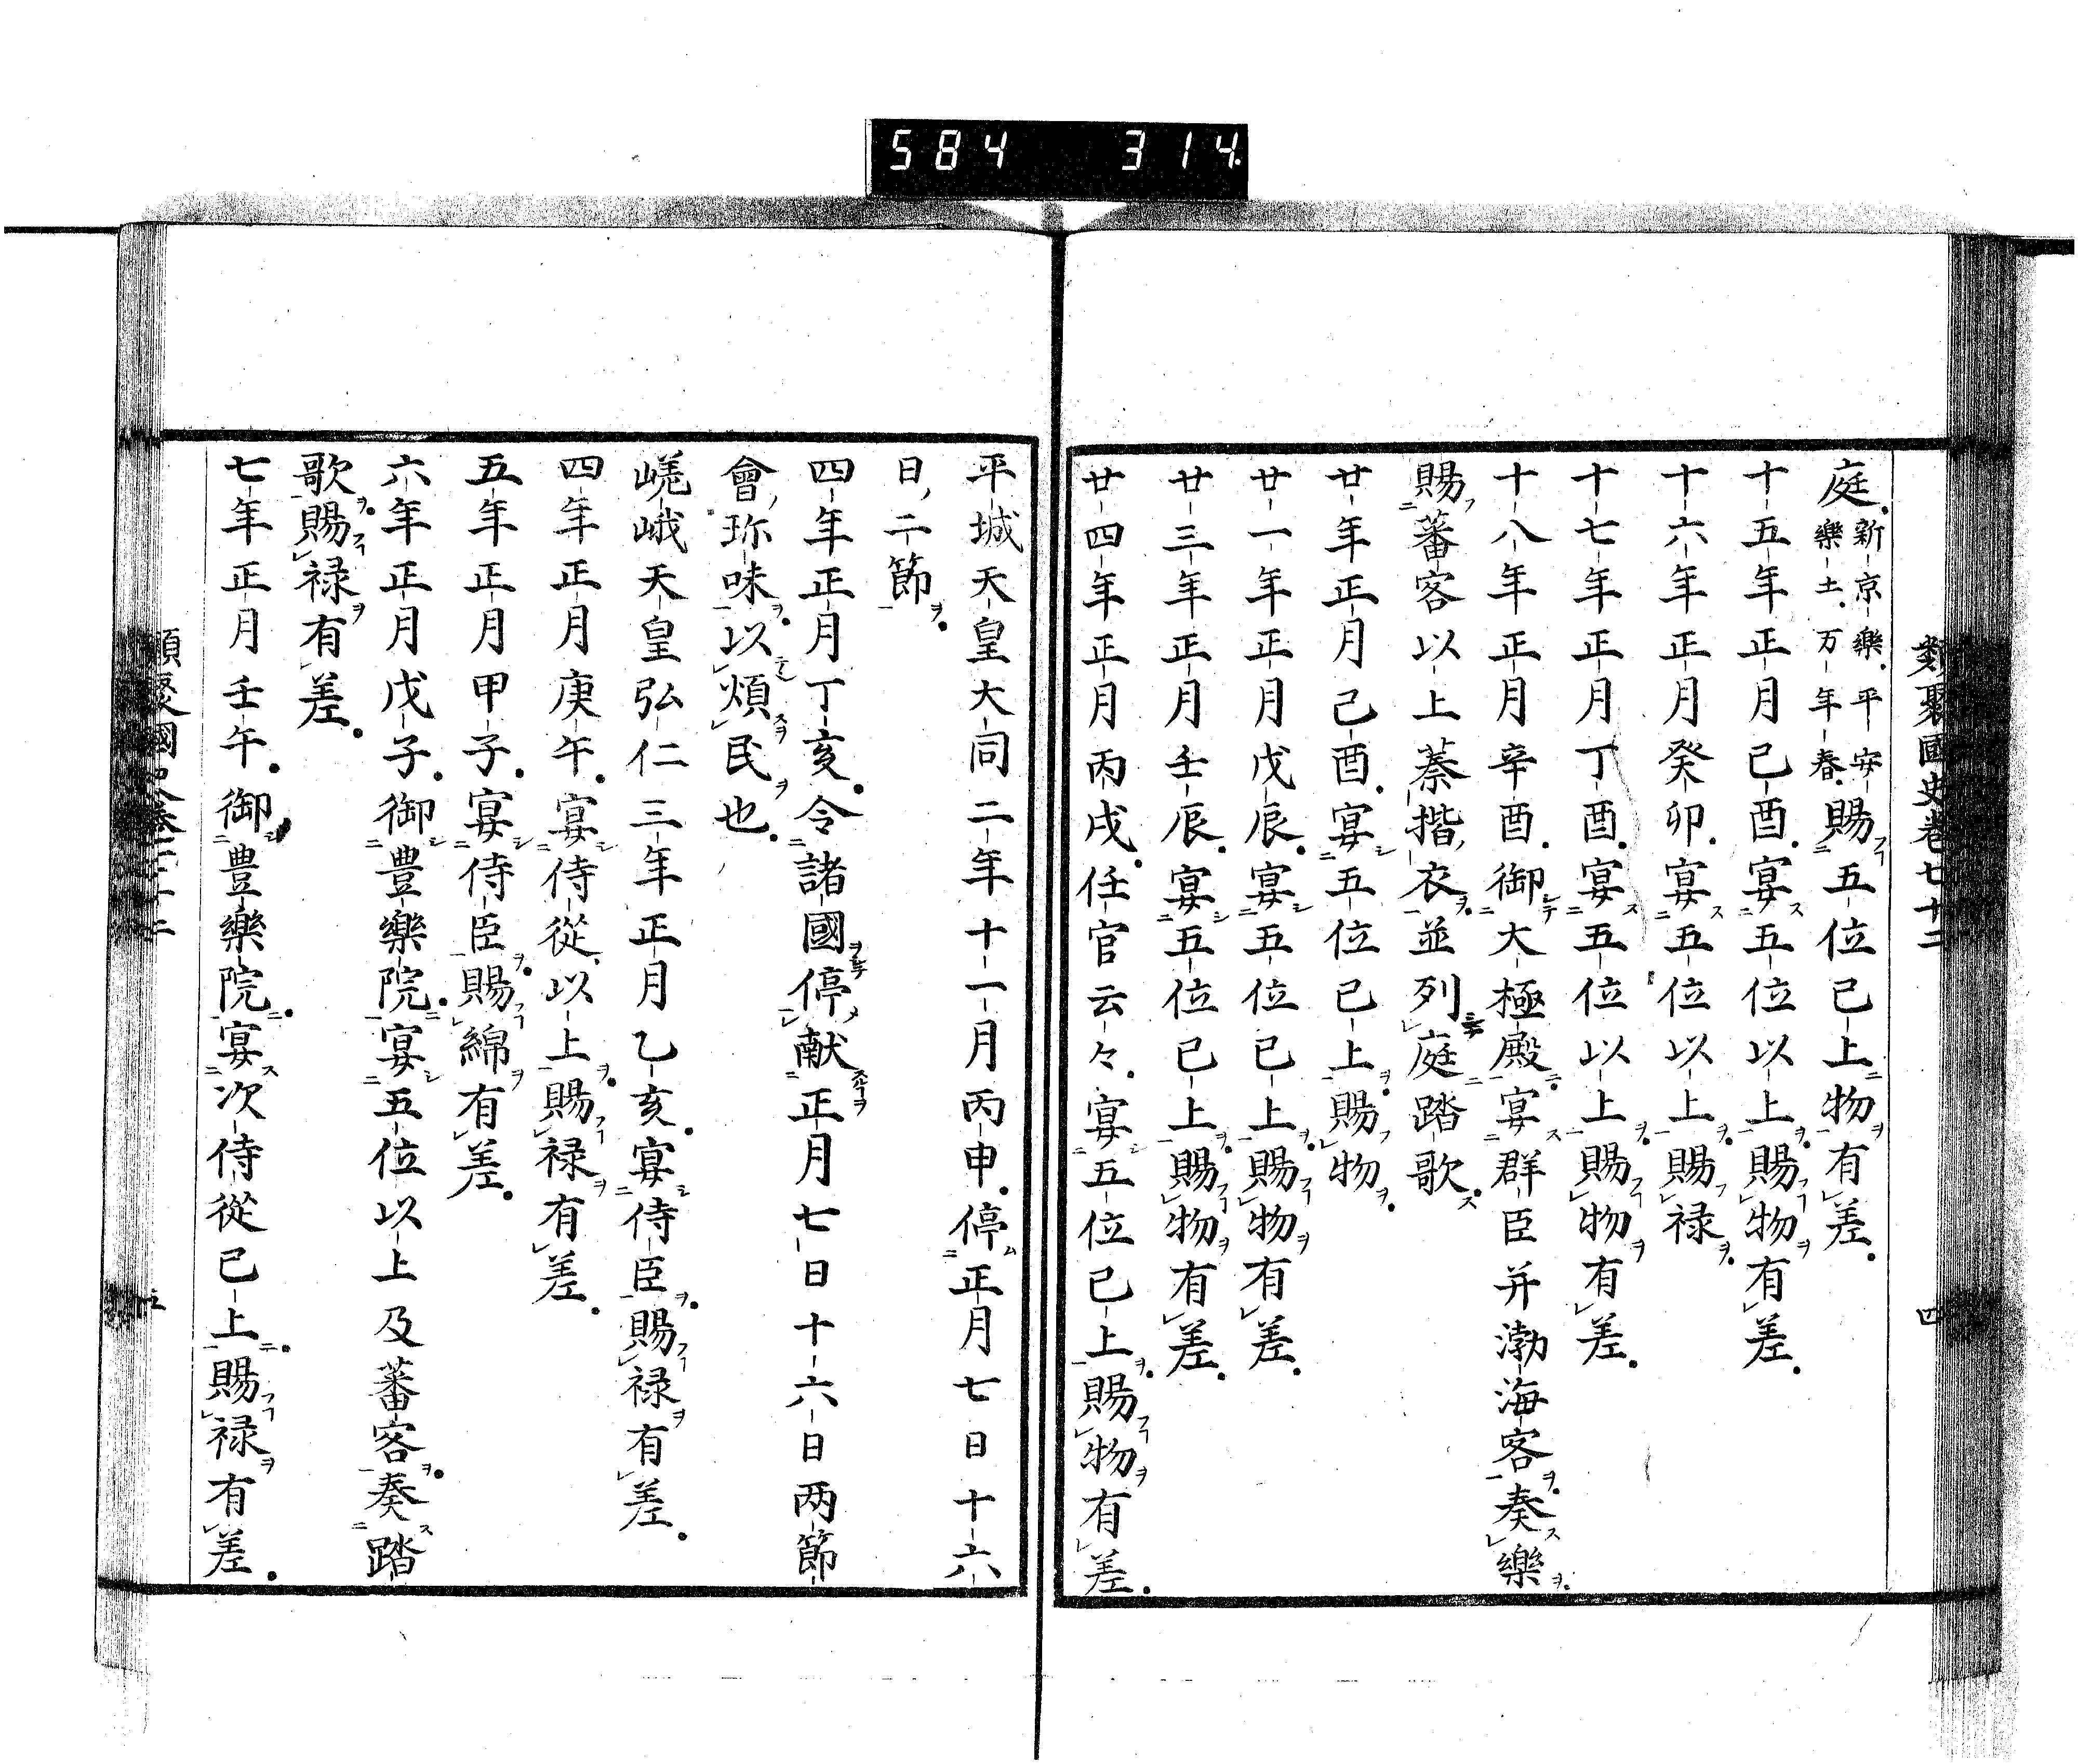 584 314.
類聚國史卷七十二 四
庭新京樂平安樂土万年春賜五位已上物有差
十五年正月己酉宴五位以上賜物有差
十六年正月癸卯宴五位以上賜禄
十七年正月丁酉宴五位以上賜物有差
十八年正月辛酉御大極殿宴群臣并渤海客奏樂
賜蕃客以上蓁揩衣並列庭踏歌
廿年正月己酉宴五位已上賜物
廿一年正月戊辰宴五位已上賜物有差
廿三年正月壬辰宴五位已上賜物有差
廿四年正月丙戌任官云々宴五位已上賜物有差
平城天皇大同二年十一月丙申停正月七日十六
日二節
四年正月丁亥令諸國停献正月七日十六日两節
會珎味以煩民也
嵯峨天皇弘仁三年正月乙亥宴侍臣賜禄有差
四年正月庚午宴侍從以上賜禄有差
五年正月甲子宴侍臣賜綿有差
六年正月戊子御豊樂院宴五位以上及蕃客奏踏
歌賜禄有差
七年正月壬午御豊樂院宴次侍從已上賜禄有差